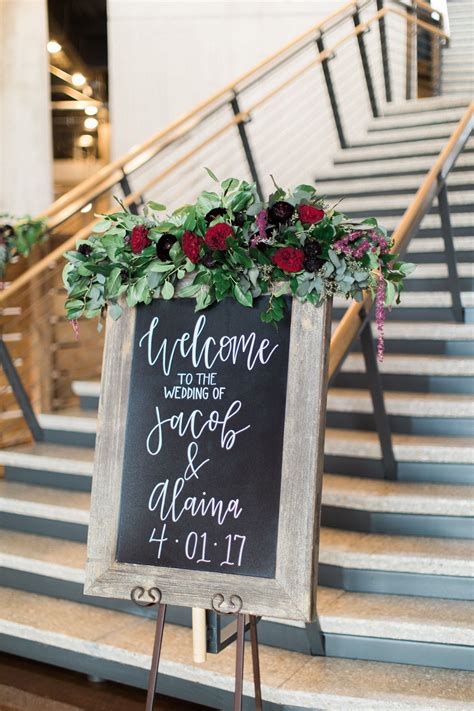 Welcome
TO THE
WEDDING OF
Jacob
&
Alaina
4·01·17